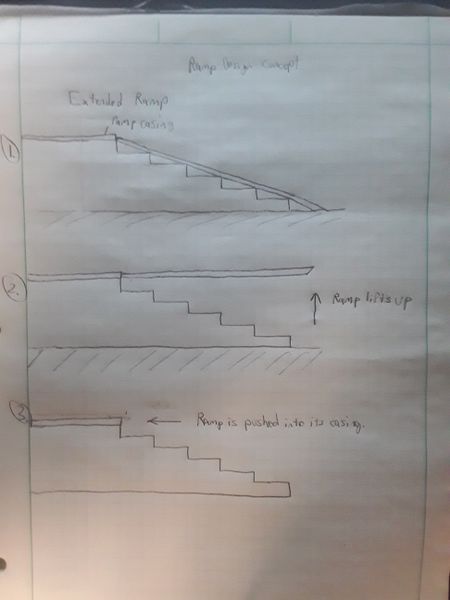 Ramp Design Concept
Extended Ramp
ramp casing
1.
2.
Ramp lifts up
3.
Ramp is pushed into its casing.